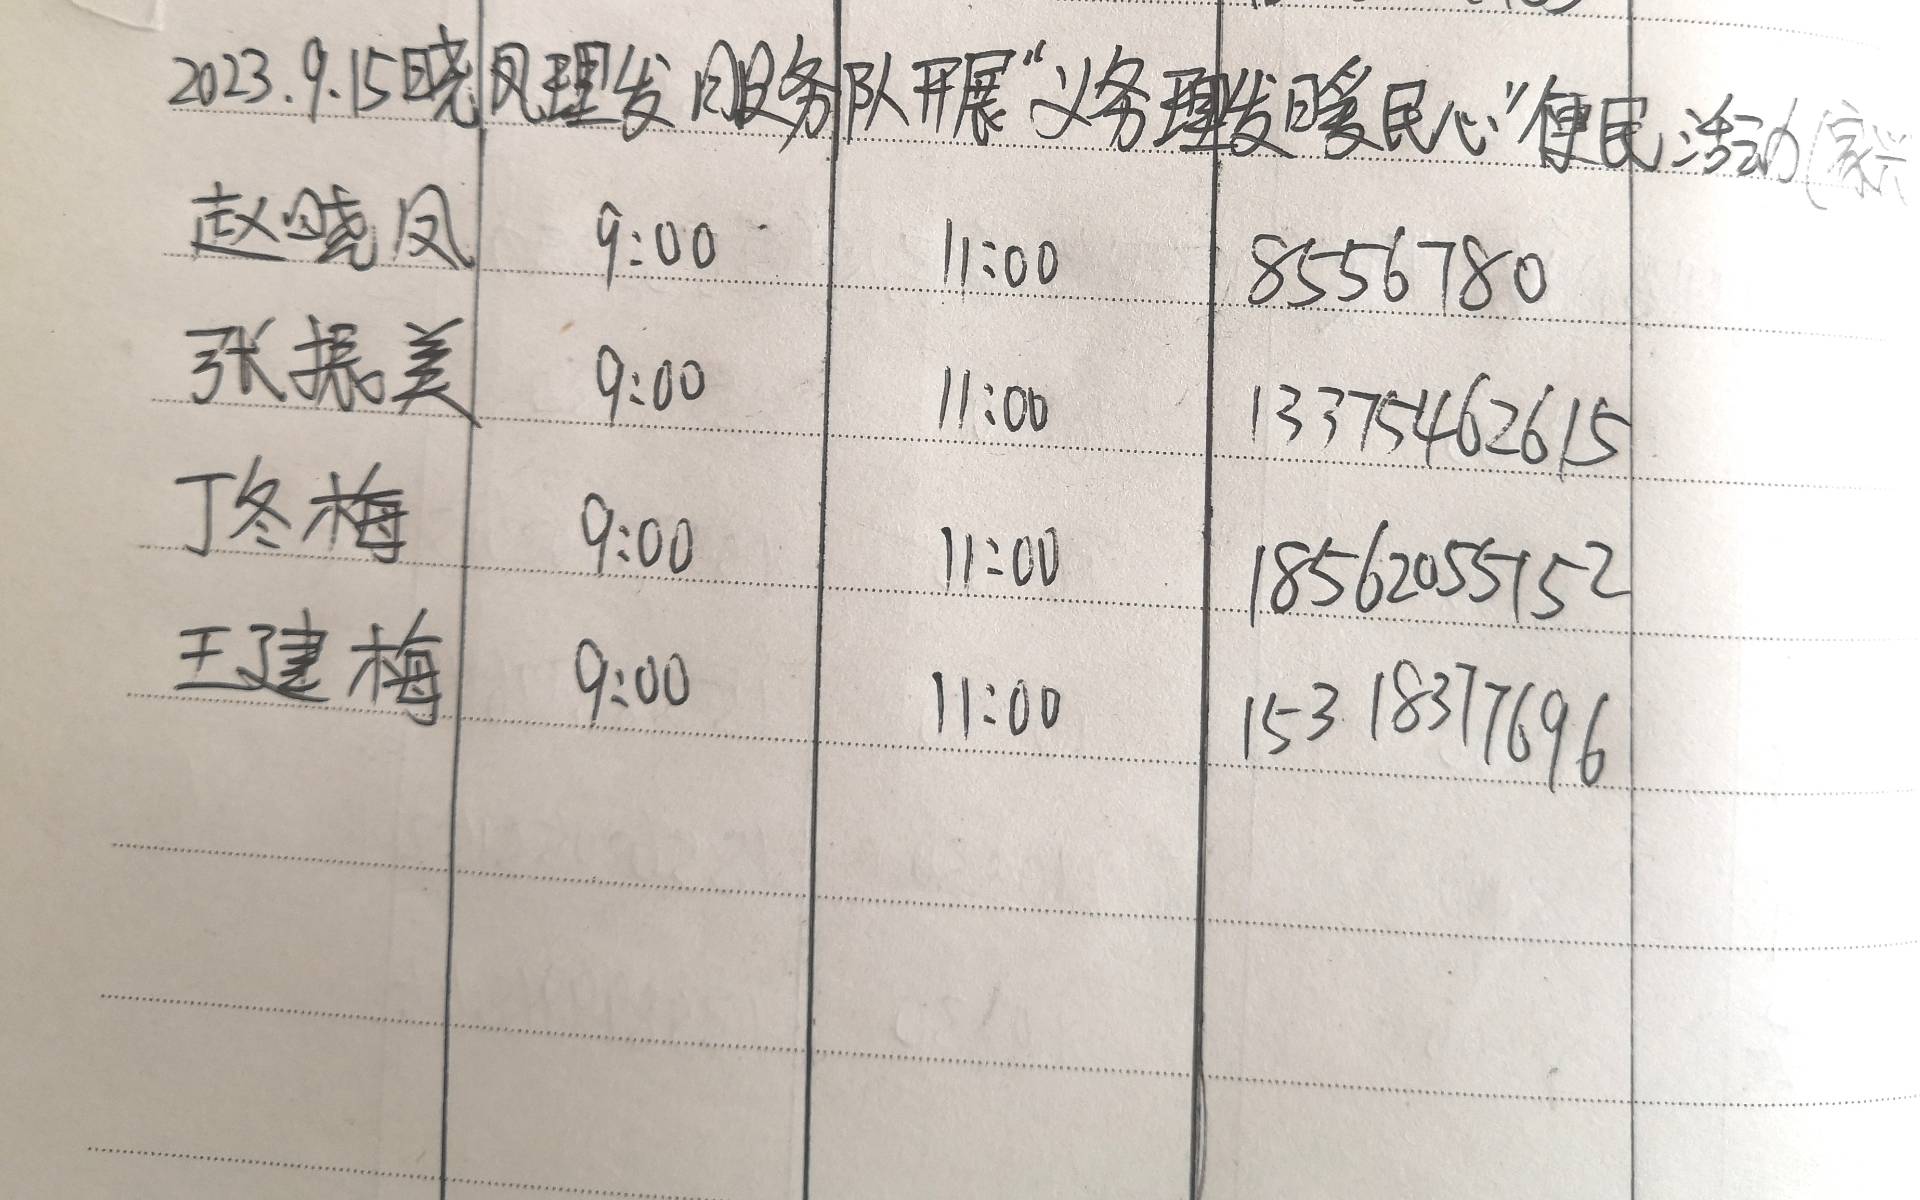 2023.9.15晓凤理发服务队开展“义务理发暖民心”便民活动(家兴
赵晓凤 9:00 11:00 8556780
张振美 9:00 11:00 13375462615
丁冬梅 9:00 11:00 18562055152
王建梅 9:00 11:00 15318377696